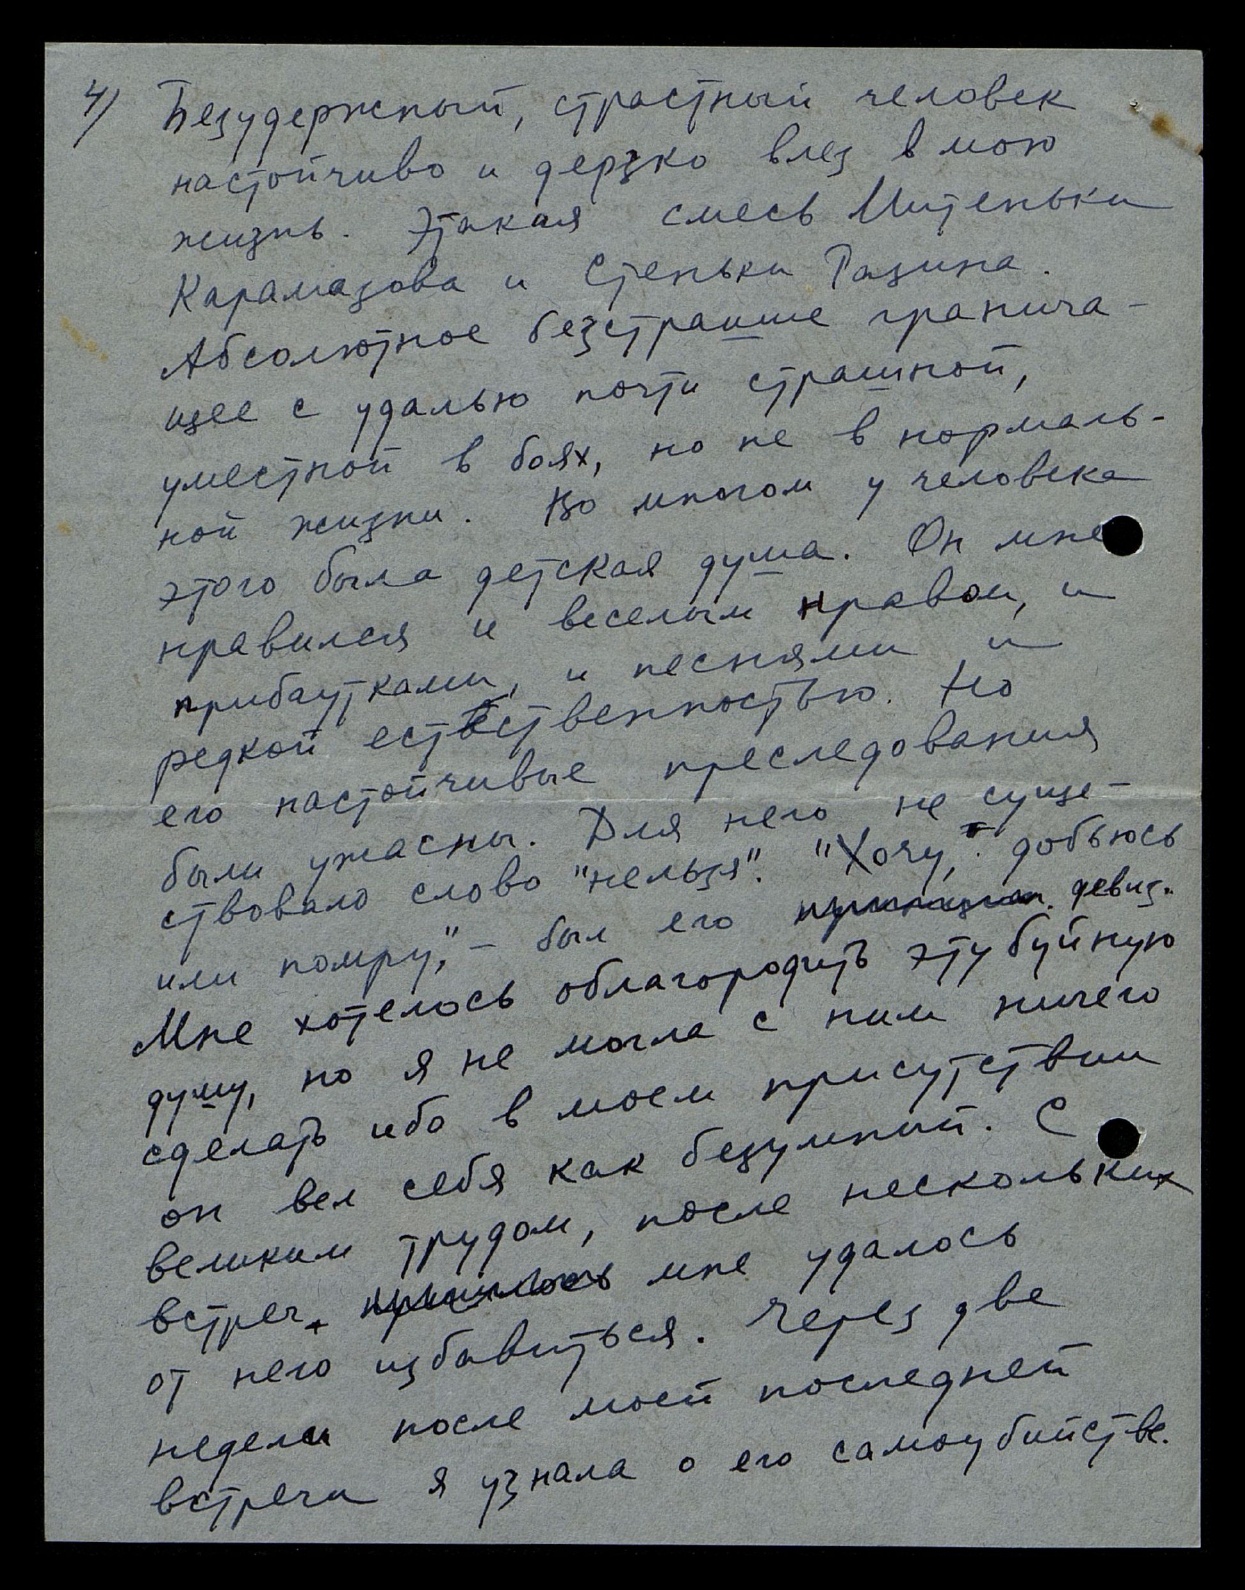 4) Безудержный, страстный человек
настойчиво и дерзко влез в мою
жизнь. Этакая смесь Митеньки
Карамазова и Стеньки Разина.
Абсолютное безстрашие гранича-
щее с удалью почти страшной,
уместной в боях, но не в нормаль-
ной жизни. Во многом у человека
этого была детская душа. Он мне
нравился и веселым нравом, и
прибаутками, и песнями и
редкой естественностью. Но
его настойчивые преследования
были ужасны. Для него не суще-
ствовало слово "нельзя". "Хочу, добьюсь
или помру", – был его девиз.
Мне хотелось облагородить эту буйную
душу, но я не могла с ним ничего
сделать ибо в моем присутствии
он вел себя как безумный. С
великим трудом, после нескольких
встреч, пришлось мне удалось
от него избавиться. Через две
недели после моей последней
встречи я узнала о его самоубийстве.